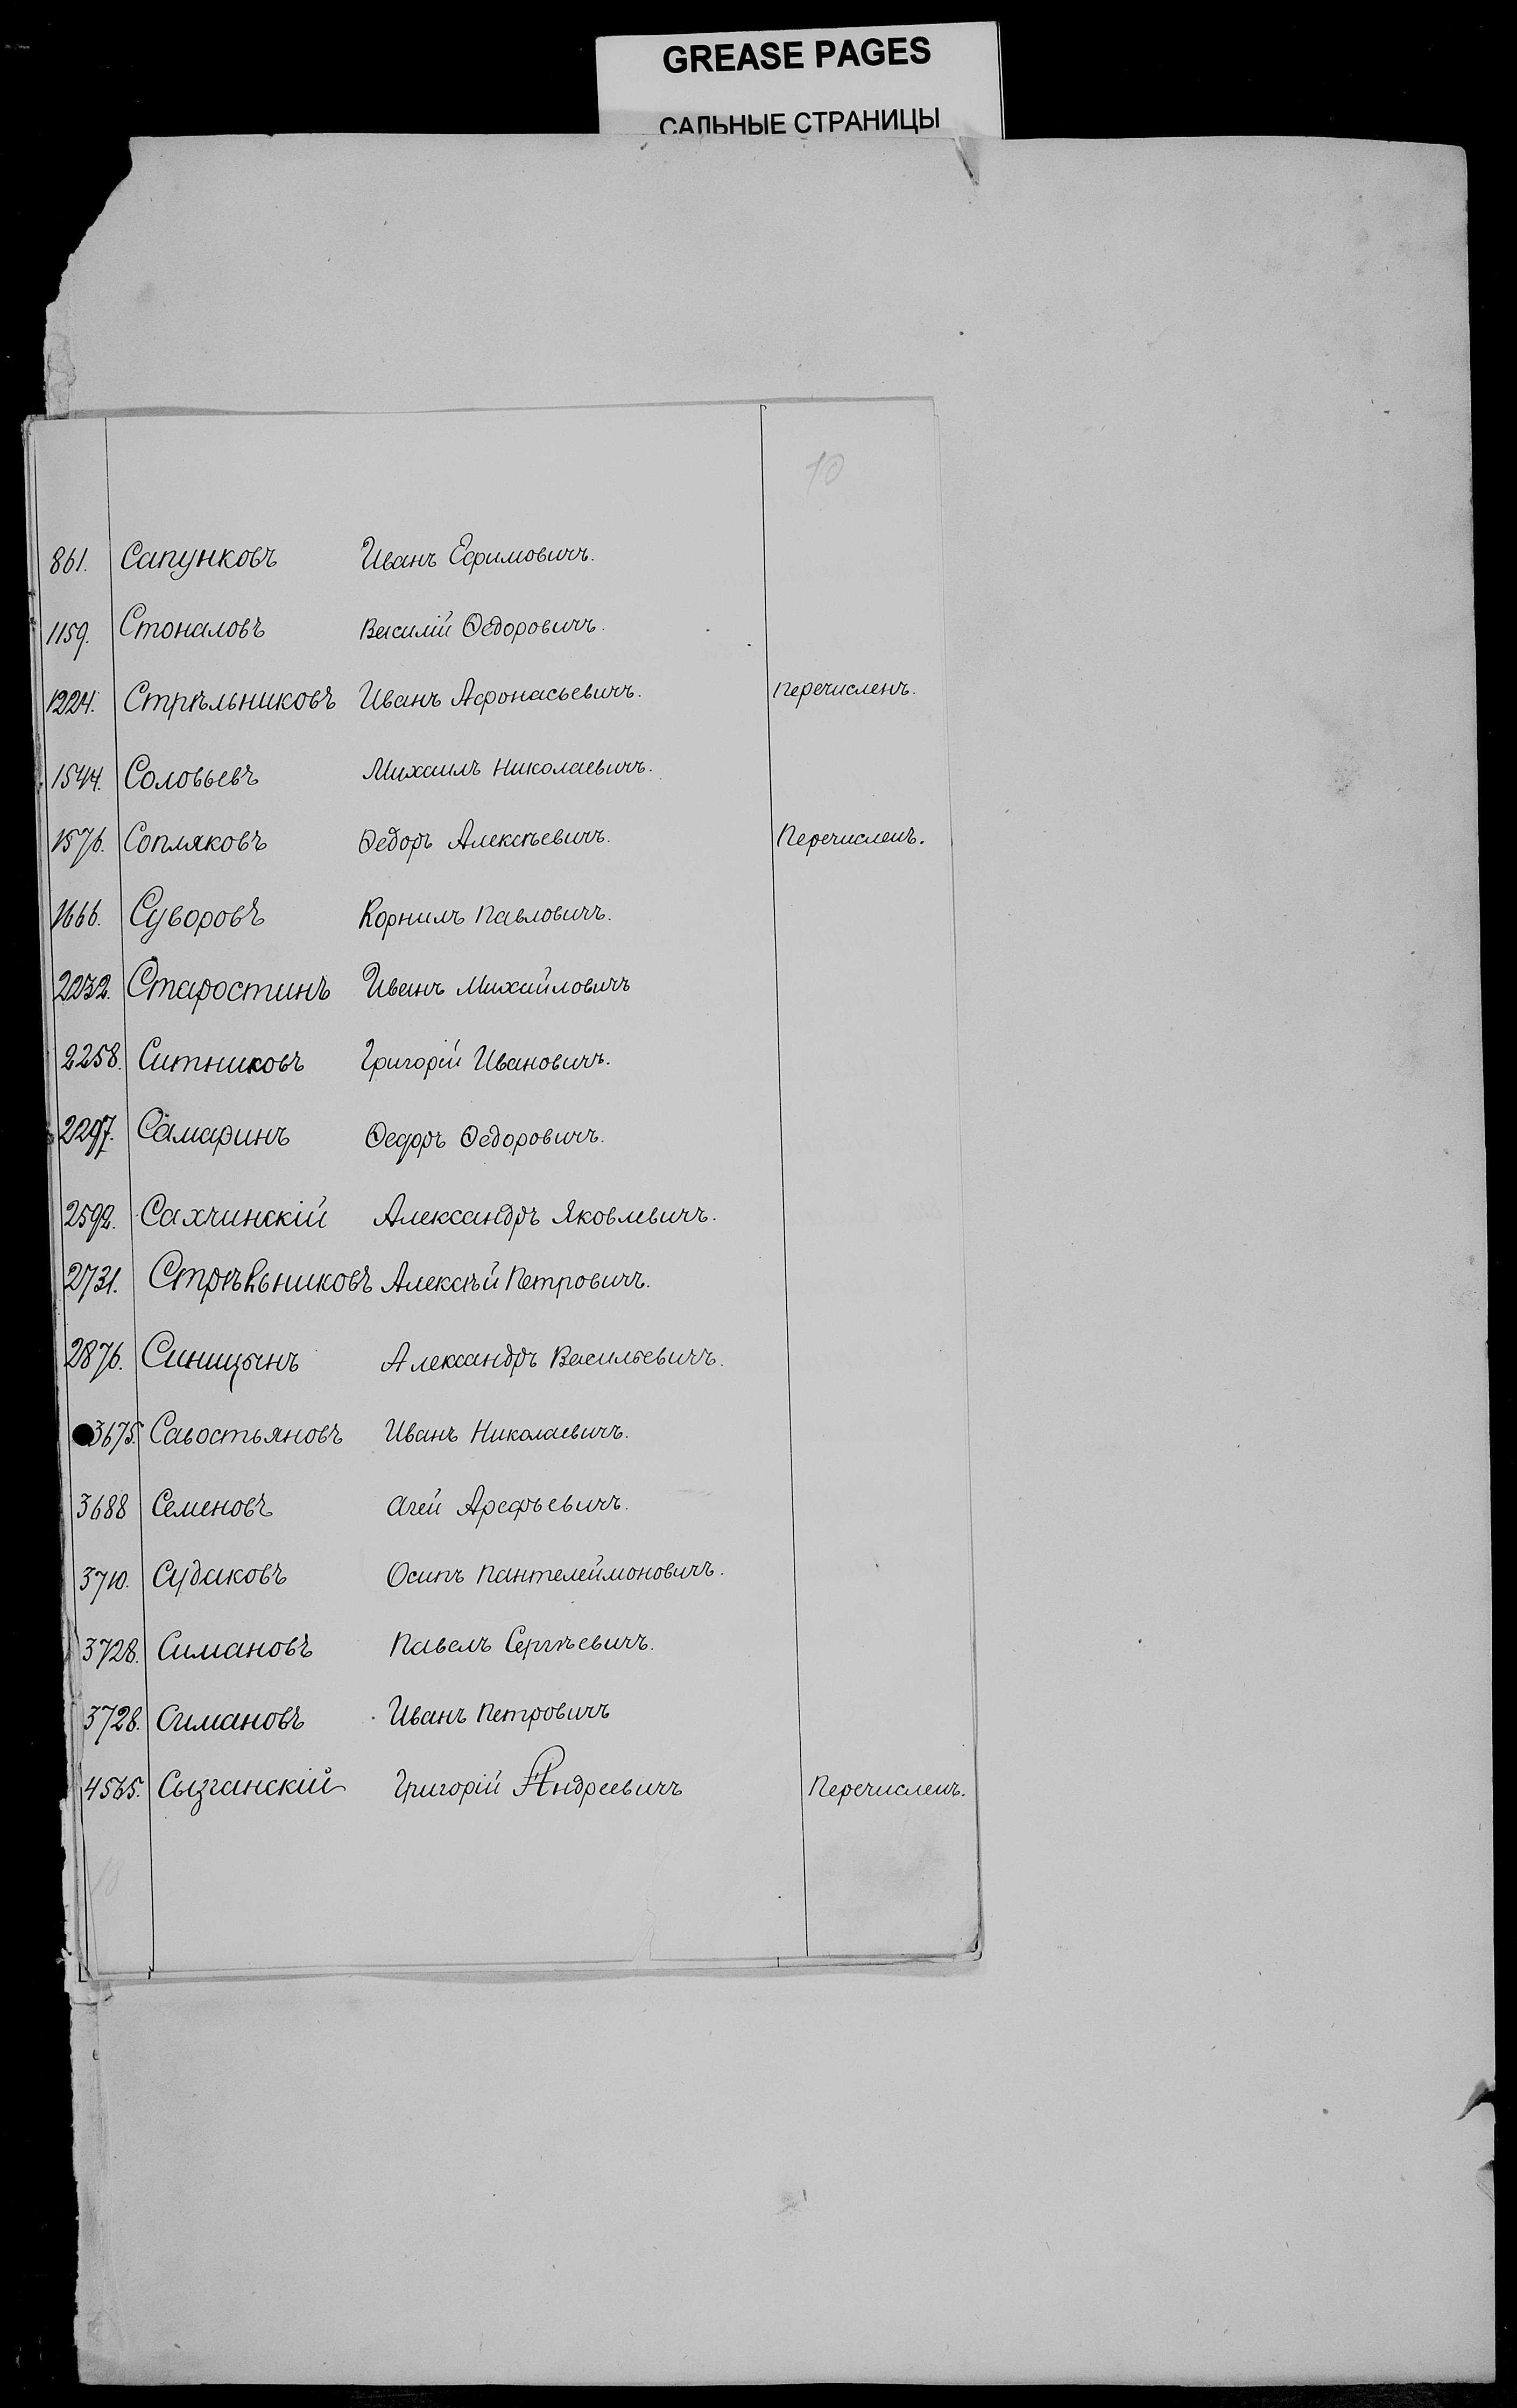 GREASE PAGES
САЛЬНЫЕ СТРАНИЦЫ
10
861. Сапунковъ Иванъ Ефимовичъ.
1159. Стоналовъ Василій Ѳедоровичъ.
1224. Стрѣльниковъ Иванъ Афонасьевичъ. перечисленъ.
1544. Соловьевъ Михаилъ Николаевичъ.
1576. Сопляковъ Ѳедоръ Алексѣевичъ. Перечисленъ.
1666. Суворовъ Корнилъ Павловичъ.
2232. Старостинъ Иванъ Михайловичъ
2258. Ситниковъ Григорій Ивановичъ.
2297. Самаринъ Ѳедоръ Ѳедоровичъ.
2592. Сахчинскій Александръ Яковлевичъ.
2731. Стрѣльниковъ Алексѣй Петровичъ.
2876. Синицынъ Александръ Васильевичъ.
3675. Савостьяновъ Иванъ Николаевичъ.
3688 Семеновъ Агей Арефьевичъ.
3710. Судаковъ Осипъ Пантелеймоновичъ.
3728. Симановъ Павелъ Сергѣевичъ.
3728. Симановъ Иванъ Петровичъ
4565. Сызганскій Григорій Андреевичъ Перечисленъ.